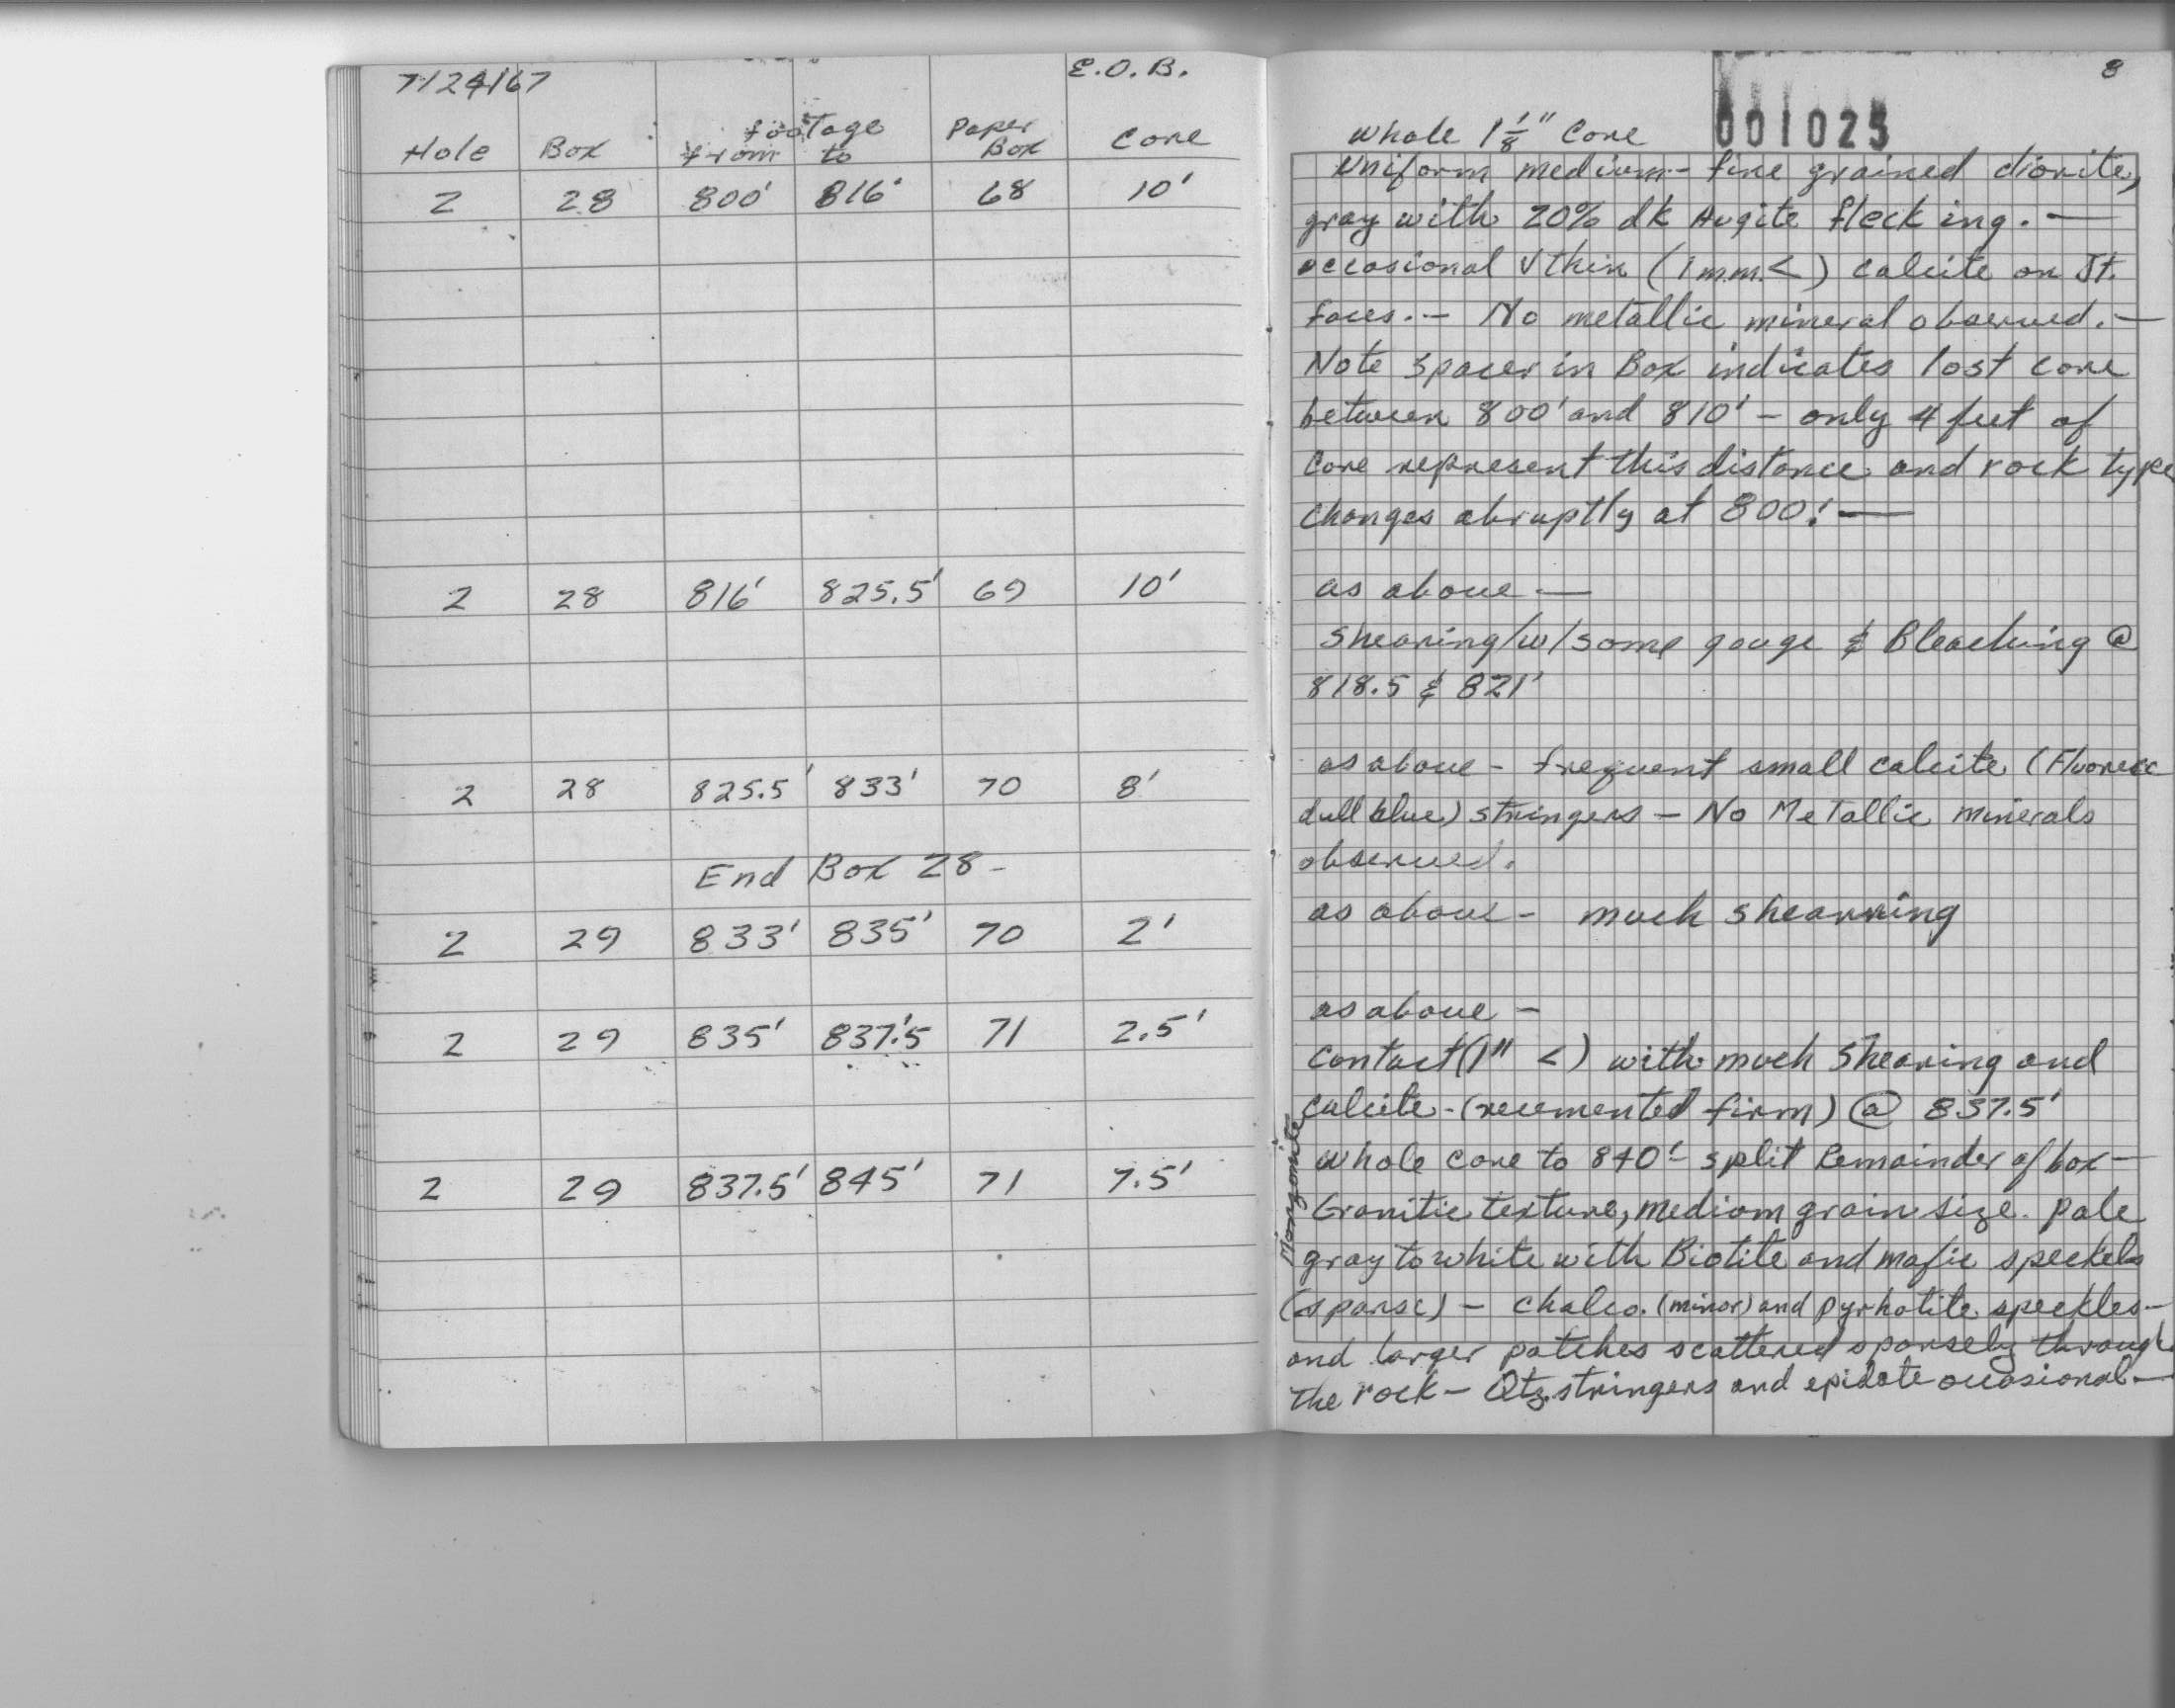 7/24/67 E.O.B.
footage Paper
Hole Box from to Box Core
2 28 800' 816' 68 10'
2 28 816' 825.5' 69 10'
2 28 825.5' 833' 70 8'
End Box 28 -
2 29 833' 835' 70 2'
2 29 835' 837.'5 71 2.5'
2 29 837.5' 845' 71 7.5'
8
001025
Whole 1 1/8" Core
Uniform medium - fine grained diorite,
gray with 20% dk Augite flecking. —
occasional Vthin (1 m.m. <) calcite on Jt.
faces. — No metallic mineral observed. —
Note spacer in Box indicates lost core
between 800' and 810' — only 4 feet of
Core represent this distance and rock type
changes abruptly at 800'. —
as above —
Shearing /w/ some gouge & Bleaching @
818.5 & 821'
as above - frequent small calcite (Fluoresc
dull blue) stringers — No Metallic minerals
observed.
as above - much shearring
as above —
Contact (1" <) with much Shearing and
calcite - (recemented firm) @ 837.5'
Monzonite
Whole core to 840' - split Remainder of box —
Granitic texture, medium grain size. Pale
gray to white with Biotite and mafic speckels
(sparse) — chalco. (minor) and pyrhotite speckles —
and larger patches scattered sparsely through
the rock — Qtz. stringers and epidote occasional —